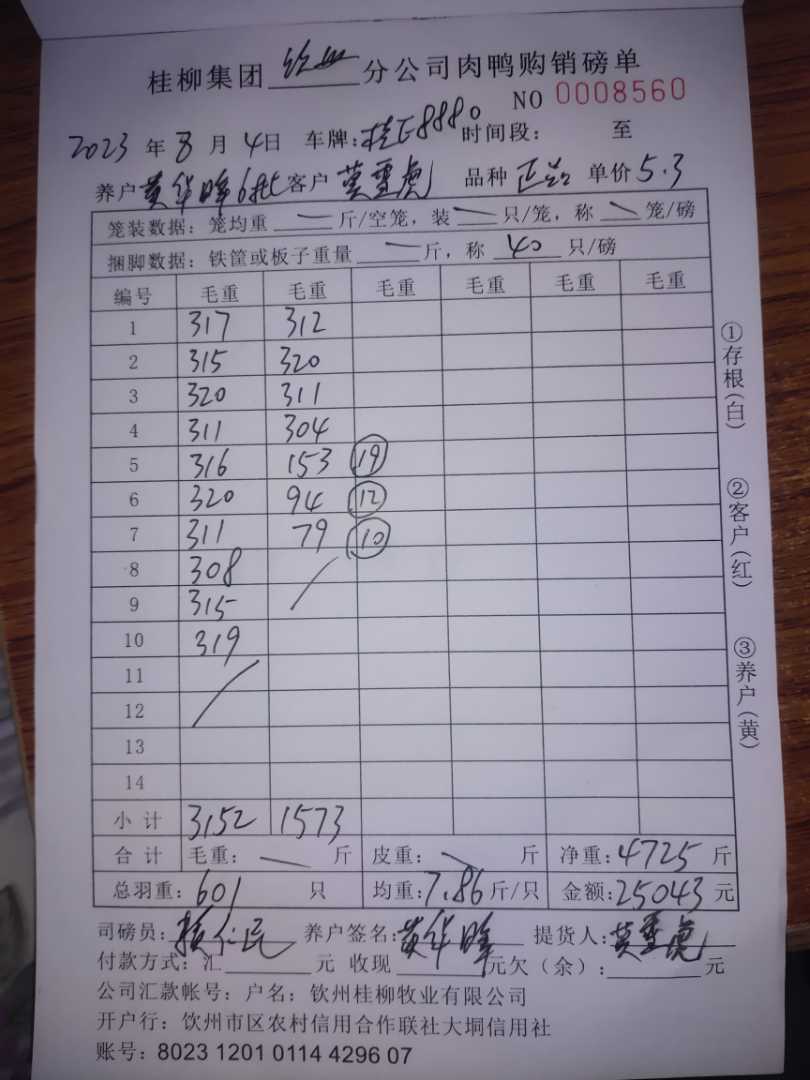 桂柳集团 钦州 分公司肉鸭购销磅单
NO 0008560
2023 年 8 月 4日 车牌:桂E8880 时间段: 至
养户 黄华晖6批 客户 莫雪虎 品种 单价 5.3
笼装数据: 笼均重 — 斤/空笼, 装 — 只/笼, 称 — 笼/磅
捆脚数据: 铁筐或板子重量 — 斤, 称 40 只/磅
编号 毛重 毛重 毛重 毛重 毛重 毛重
1 317 312
2 315 320
3 320 311
4 311 304
5 316 153 19
6 320 94 12
7 311 79 10
8 308
9 315
10 319
11
12
13
14
小 计 3152 1573
合 计 毛重: — 斤 皮重: — 斤 净重: 4725 斤
总羽重: 601 只 均重: 7.86 斤/只 金额: 25043 元
司磅员: 养户签名: 黄华晖 提货人: 莫雪虎
付款方式: 汇 元 收现 元欠(余): 元
公司汇款帐号: 户名; 钦州桂柳牧业有限公司
开户行: 钦州市区农村信用合作联社大垌信用社
账号: 8023 1201 0114 4296 07
①存根(白)
②客户(红)
③养户(黄)